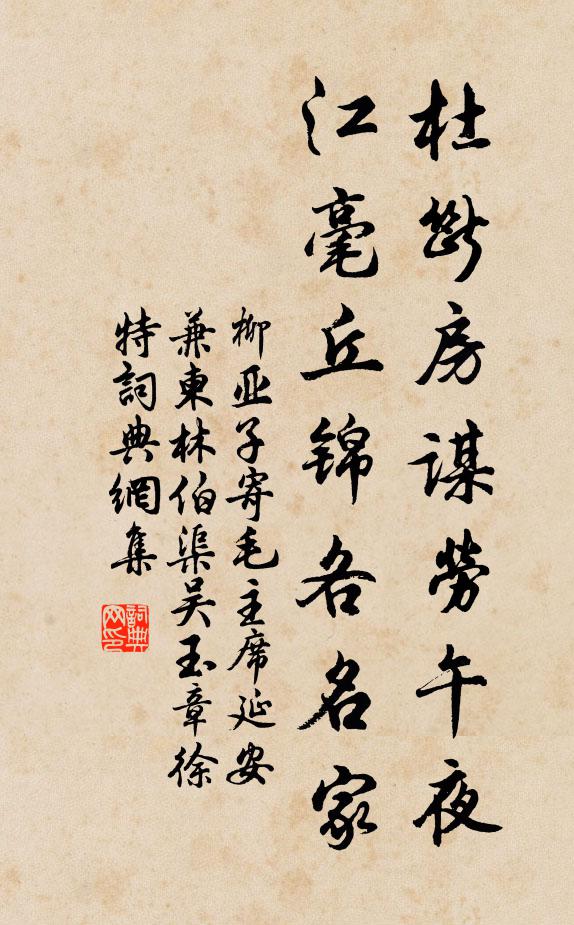 杜斷房謀勞午夜
江毫丘錦各名家
柳亚子寄毛主席延安
兼柬林伯渠吴玉章徐
特詞典網集
詞典网印